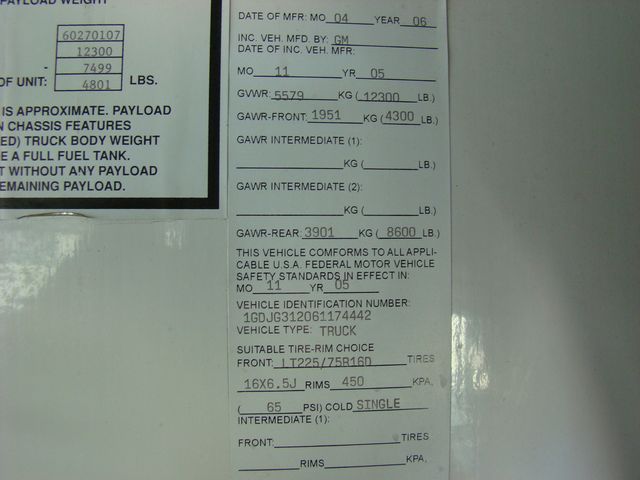 PAYLOAD WEIGHT
60270107
12300
- 7499
OF UNIT: 4801 LBS.
IS APPROXIMATE. PAYLOAD
N CHASSIS FEATURES
ED) TRUCK BODY WEIGHT
E A FULL FUEL TANK.
T WITHOUT ANY PAYLOAD
EMAINING PAYLOAD.
DATE OF MFR: MO 04 YEAR 06
INC. VEH. MFD. BY: GM
DATE OF INC. VEH. MFR:
MO 11 YR 05
GVWR: 5579 KG ( 12300 LB.)
GAWR-FRONT: 1951 KG ( 4300 LB.)
GAWR INTERMEDIATE (1):
KG ( LB.)
GAWR INTERMEDIATE (2):
KG ( LB.)
GAWR-REAR: 3901 KG ( 8600 LB.)
THIS VEHICLE COMFORMS TO ALL APPLI-
CABLE U.S.A. FEDERAL MOTOR VEHICLE
SAFETY STANDARDS IN EFFECT IN:
MO 11 YR 05
VEHICLE IDENTIFICATION NUMBER:
1GDJG312061174442
VEHICLE TYPE: TRUCK
SUITABLE TIRE-RIM CHOICE
FRONT: LT225/75R16D TIRES
16X6.5J RIMS 450 KPA,
( 65 PSI) COLD SINGLE
INTERMEDIATE (1):
FRONT: TIRES
RIMS KPA,